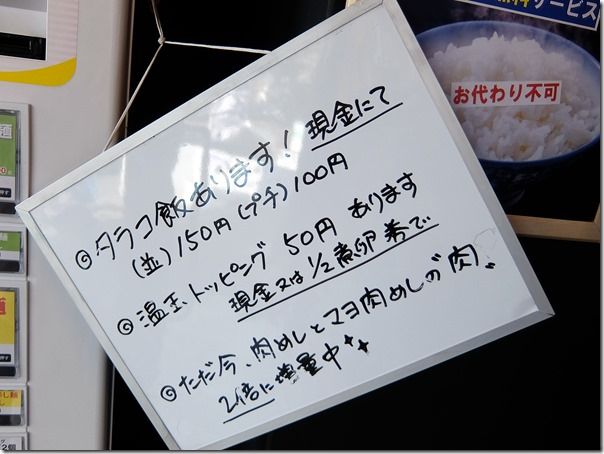 無料サービス
お代わり不可
◎タラコ飯あります！現金にて
(並)150円(プチ)100円
◎温玉トッピング50円あります
現金又は1/2煮卵券で
◎ただ今、肉めしとマヨ肉めしの"肉"
2倍に増量中